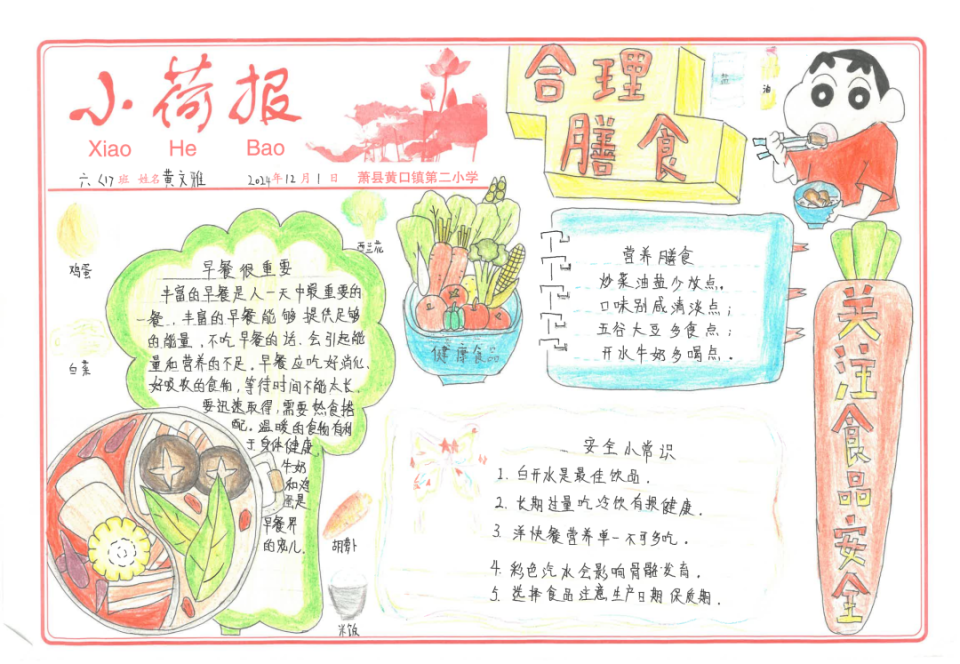 小荷报
Xiao He Bao
六(17)班 姓名 黄文雅 2024年12月1日 萧县黄口镇第二小学
合理
膳食
油
鸡蛋
白菜
西兰花
早餐很重要
丰富的早餐是人一天中最重要的
一餐,丰富的早餐能够提供足够
的能量,不吃早餐的话、会引起能
量和营养的不足。早餐应吃好消化、
好吸收的食物,等待时间不能太长、
要迅速取得,需要热食搭
配。温暖的食物有利
于身体健康,
牛奶
和鸡
蛋是
早餐界
的宠儿.
胡萝卜
米饭
健康食品
营养膳食
炒菜油盐少放点。
口味别咸清淡点;
五谷大豆多食点;
开水牛奶多喝点。
安全小常识
1. 白开水是最佳饮品.
2. 长期过量吃冷饮有损健康.
3. 洋快餐营养单一不可多吃.
4. 彩色汽水会影响骨骼发育.
5. 选择食品注意生产日期保质期.
关注食品安全